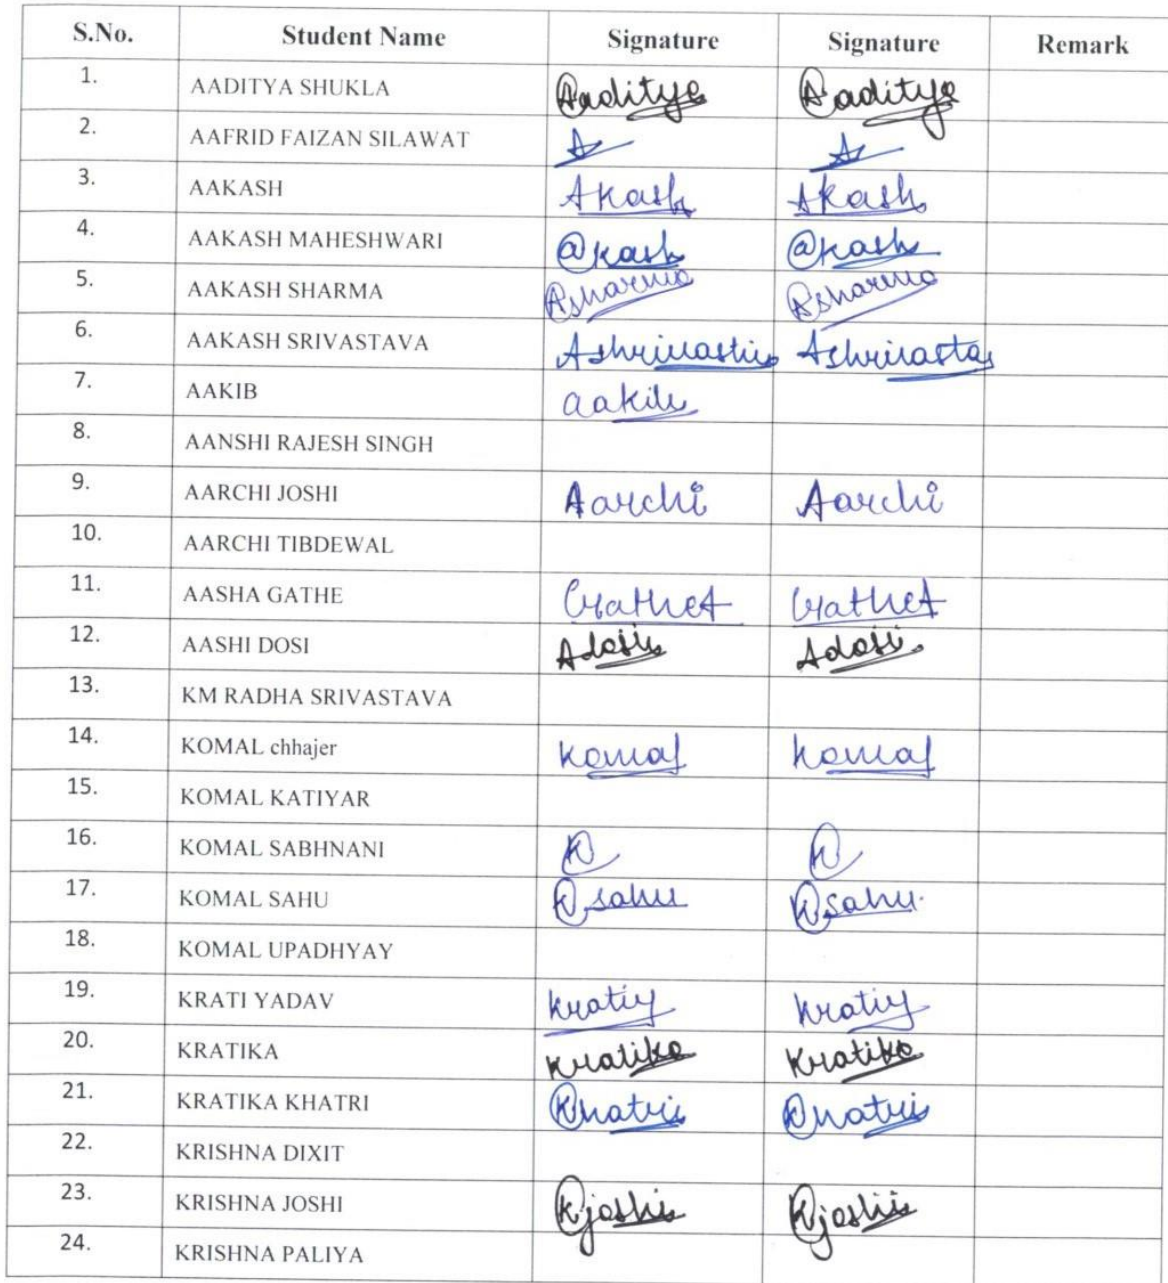 S.No. Student Name Signature Signature Remark
1. AADITYA SHUKLA Aaditya Aaditya
2. AAFRID FAIZAN SILAWAT A A
3. AAKASH Akash Akash
4. AAKASH MAHESHWARI @kash @kash
5. AAKASH SHARMA Asharma Asharma
6. AAKASH SRIVASTAVA
7. AAKIB aakib
8. AANSHI RAJESH SINGH
9. AARCHI JOSHI Aarchi Aarchi
10. AARCHI TIBDEWAL
11. AASHA GATHE
12. AASHI DOSI Adosi Adosi
13. KM RADHA SRIVASTAVA
14. KOMAL chhajer Komal Komal
15. KOMAL KATIYAR
16. KOMAL SABHNANI K K
17. KOMAL SAHU Ksahu Ksahu
18. KOMAL UPADHYAY
19. KRATI YADAV Kratiy Kratiy
20. KRATIKA Kratika Kratika
21. KRATIKA KHATRI Khatri Khatri
22. KRISHNA DIXIT
23. KRISHNA JOSHI Kjoshi Kjoshi
24. KRISHNA PALIYA